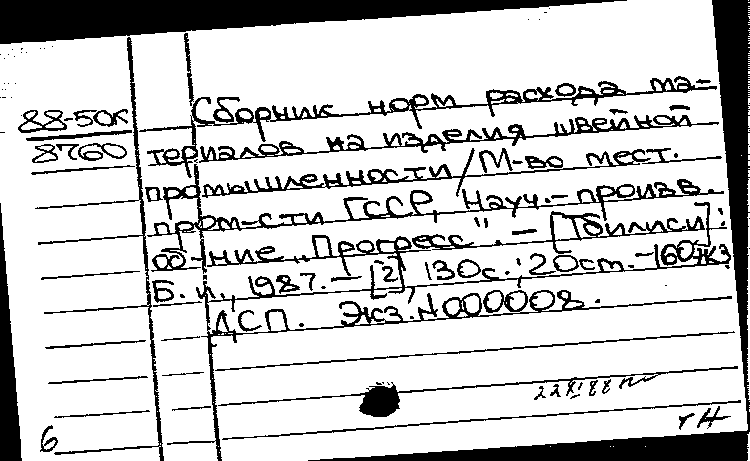 88-50К
8760
Сборник норм расхода ма-
териалов на изделия швейной
промышленности/М-во мест.
пром-сти ГССР, Науч.-произв.
об-ние „Прогресс“. — [Тбилиси]:
Б. и., 1987. — [2], 130с.; 20см. — 160экз
ДСП. Экз. N000008.
6